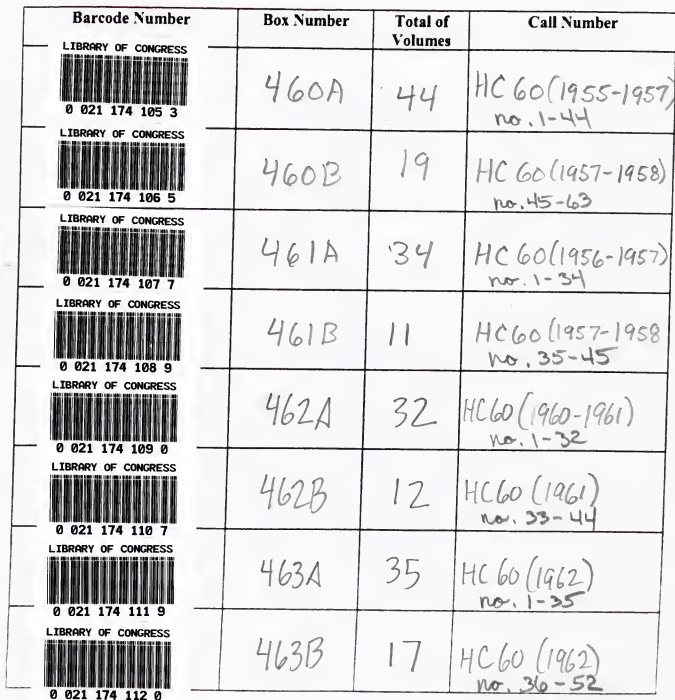 Barcode Number Box Number Total of Volumes Call Number
LIBRARY OF CONGRESS
0 021 174 105 3
460A 44 HC 60 (1955-1957)
no. 1-44
LIBRARY OF CONGRESS
0 021 174 106 5
460B 19 HC 60 (1957-1958)
no. 45-63
LIBRARY OF CONGRESS
0 021 174 107 7
461A 34 HC 60 (1956-1957)
no. 1-34
LIBRARY OF CONGRESS
0 021 174 108 9
461B 11 HC 60 (1957-1958
no. 35-45
LIBRARY OF CONGRESS
0 021 174 109 0
462A 32 HC 60 (1960-1961)
no. 1-32
LIBRARY OF CONGRESS
0 021 174 110 7
462B 12 HC 60 (1961)
no. 33-44
LIBRARY OF CONGRESS
0 021 174 111 9
463A 35 HC 60 (1962)
no. 1-35
LIBRARY OF CONGRESS
0 021 174 112 0
463B 17 HC 60 (1962)
no. 36-52